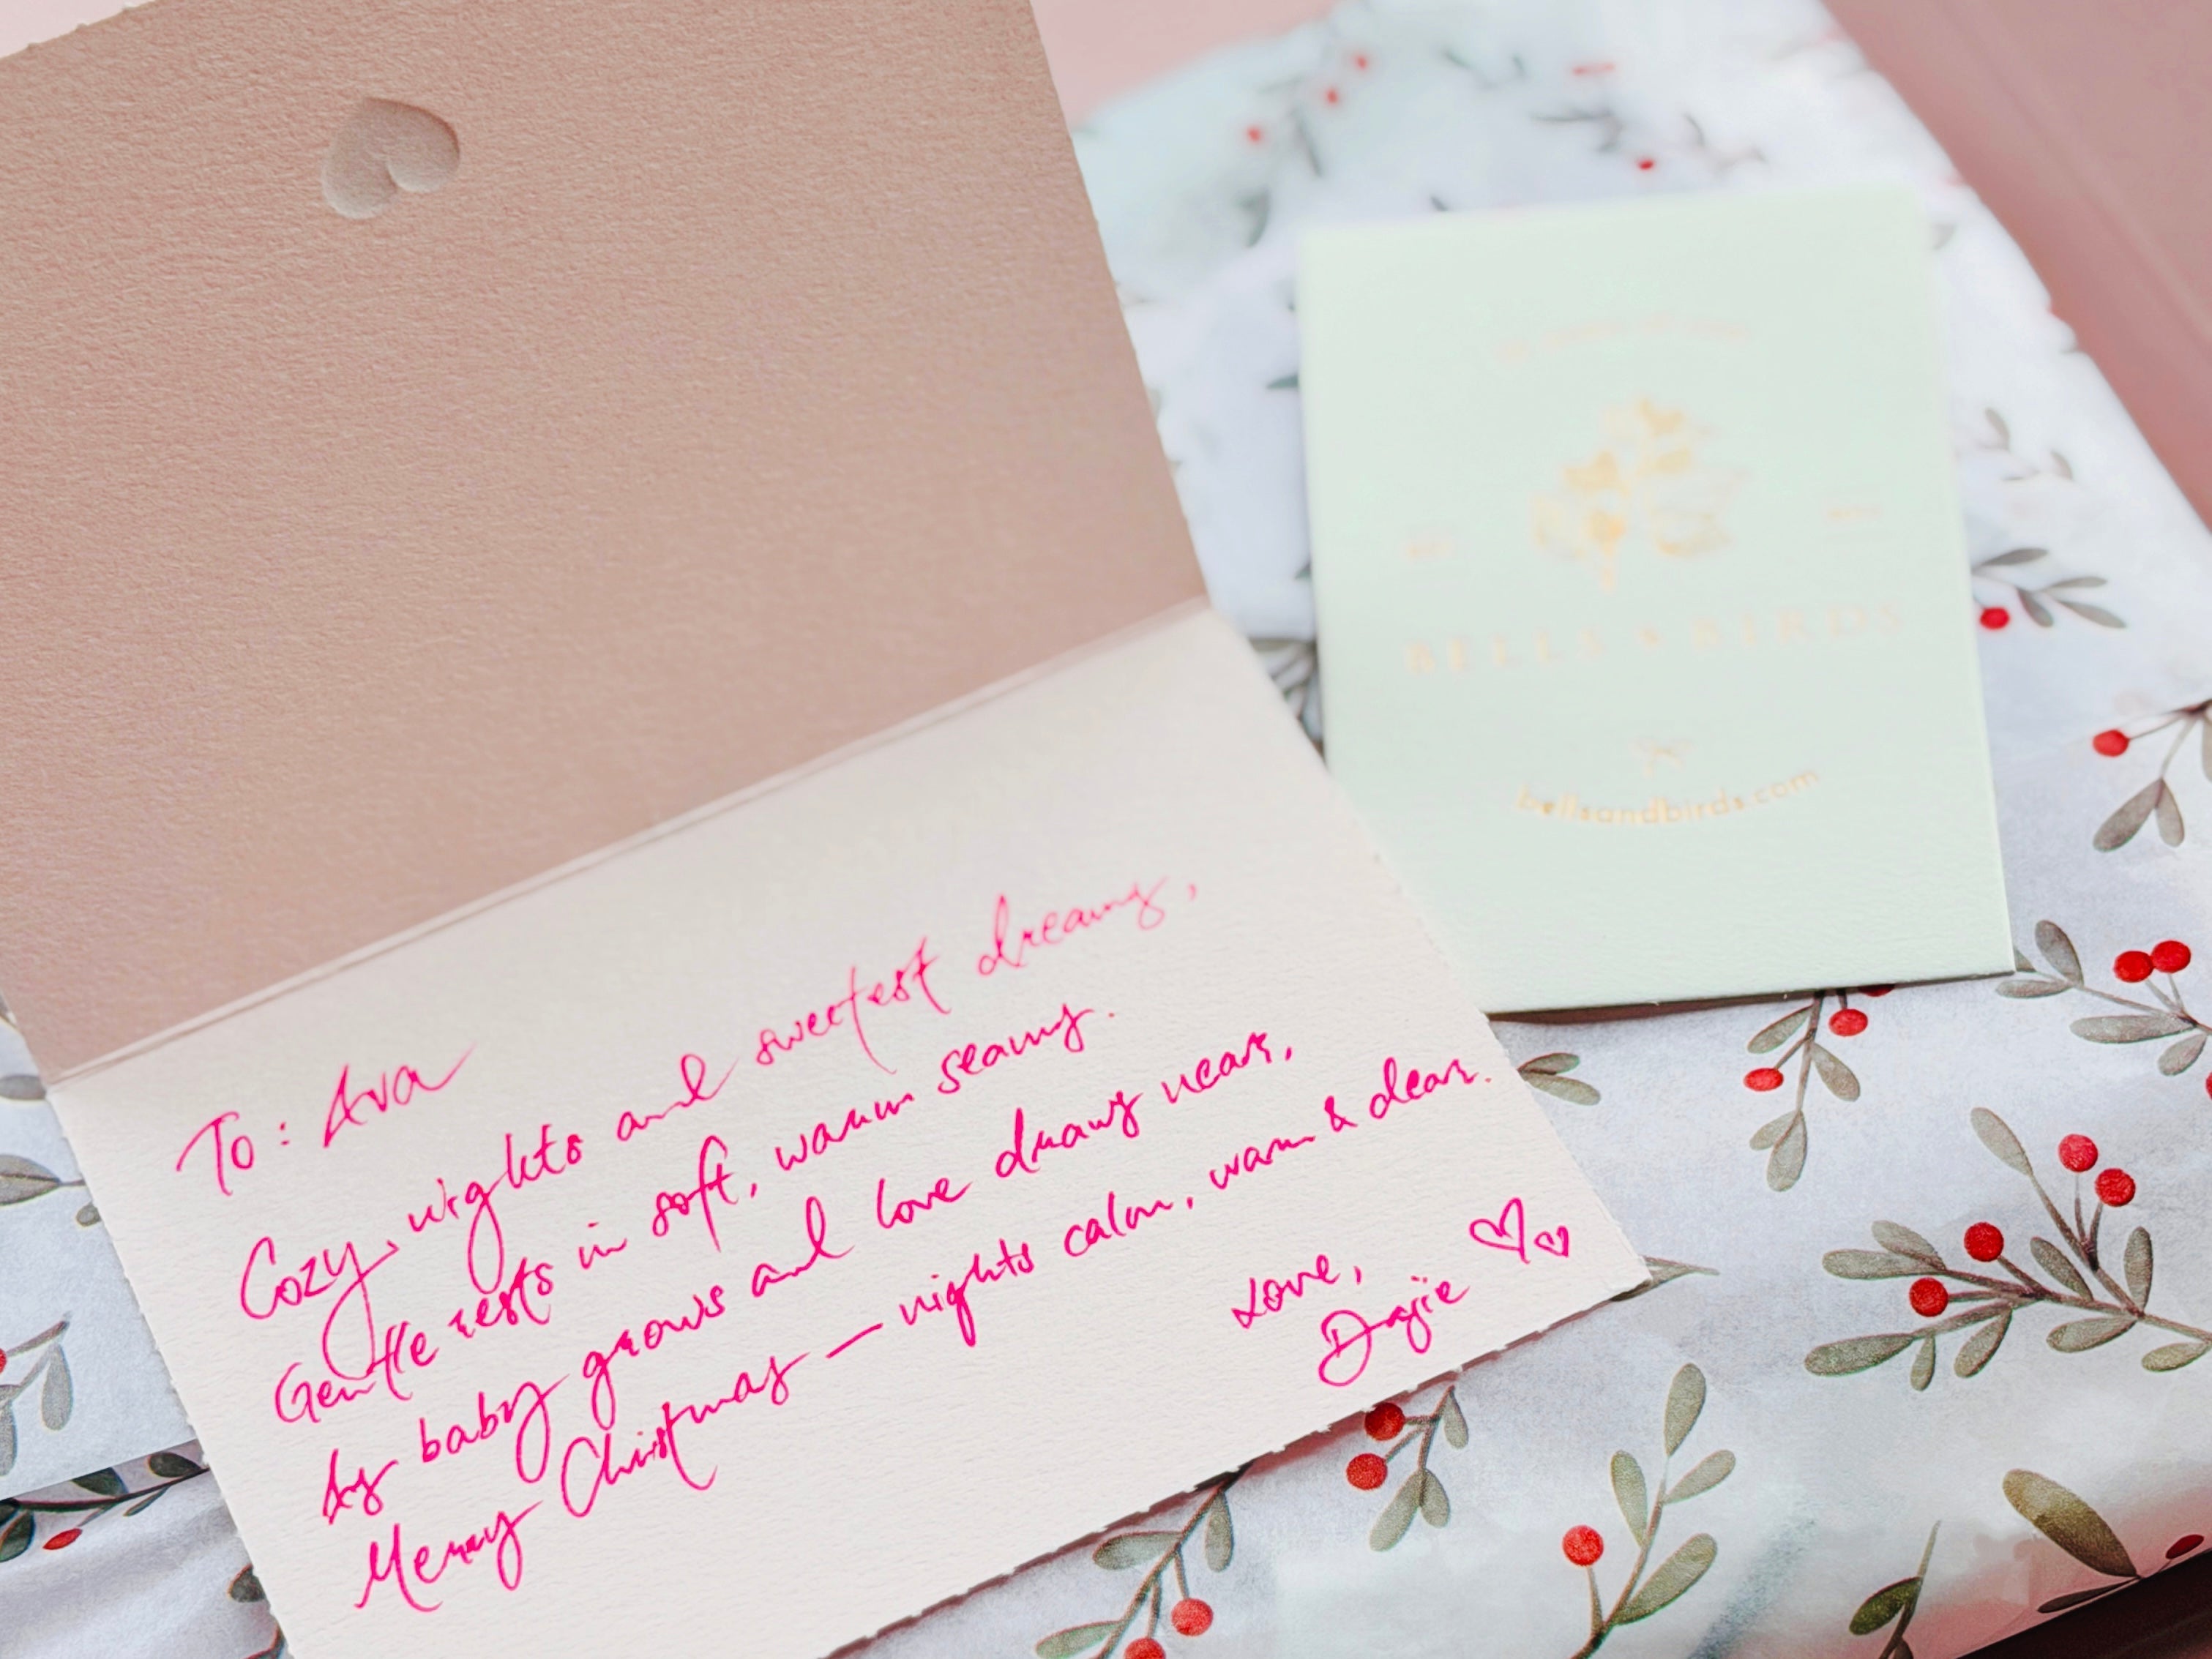 To: Ava
Cozy nights and sweetest dreams,
Gentle rests in soft, warm seams.
As baby grows and love draws near,
Merry Christmas — nights calm, warm & dear.
Love,
Dajie
BELLS & BIRDS
bellsandbirds.com